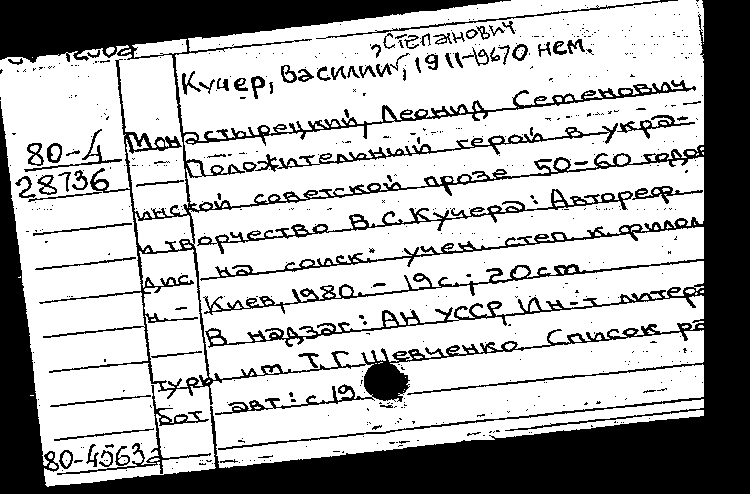 Степанович
Кучер, Василий, 1911-1967 О нем.
80-4
28736
Монастырецкий, Леонид Семенович.
Положительный герой в укра-
инской советской прозе 50-60 годов
и творчество В.С. Кучера: Автореф.
дис. на соиск. учен. степ. к. филол.
н. - Киев, 1980. - 19 с.; 20 см.
В надзаг.: АН УССР, Ин-т литера
туры им. Т.Г. Шевченко. Список ра
бот авт.: с. 19.
80-4563а